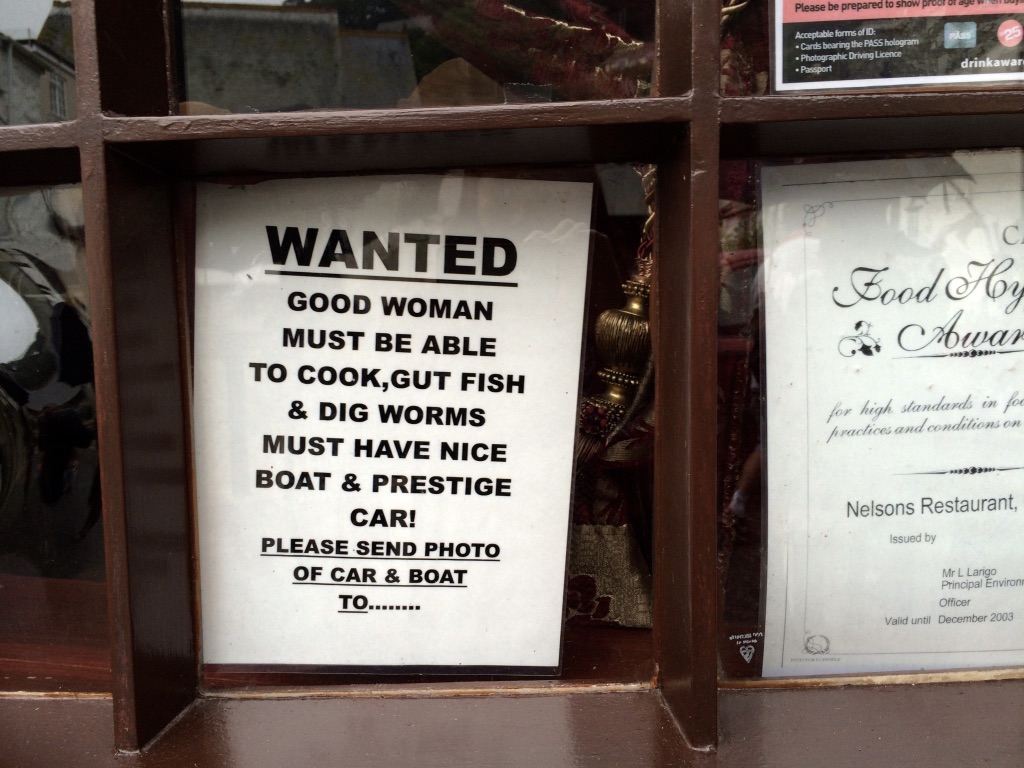 WANTED
GOOD WOMAN
MUST BE ABLE
TO COOK,GUT FISH
& DIG WORMS
MUST HAVE NICE
BOAT & PRESTIGE
CAR!
PLEASE SEND PHOTO
OF CAR & BOAT
TO........
Please be prepared to show proof of age when
Acceptable forms of ID:
• Cards bearing the PASS hologram
• Photographic Driving Licence
• Passport
PASS
25
drinkawar
Food Hy
Awar
for high standards in
practices and conditions on
Nelsons Restaurant,
Issued by
Mr L Larigo
Principal Environ
Officer
Valid until December 2003